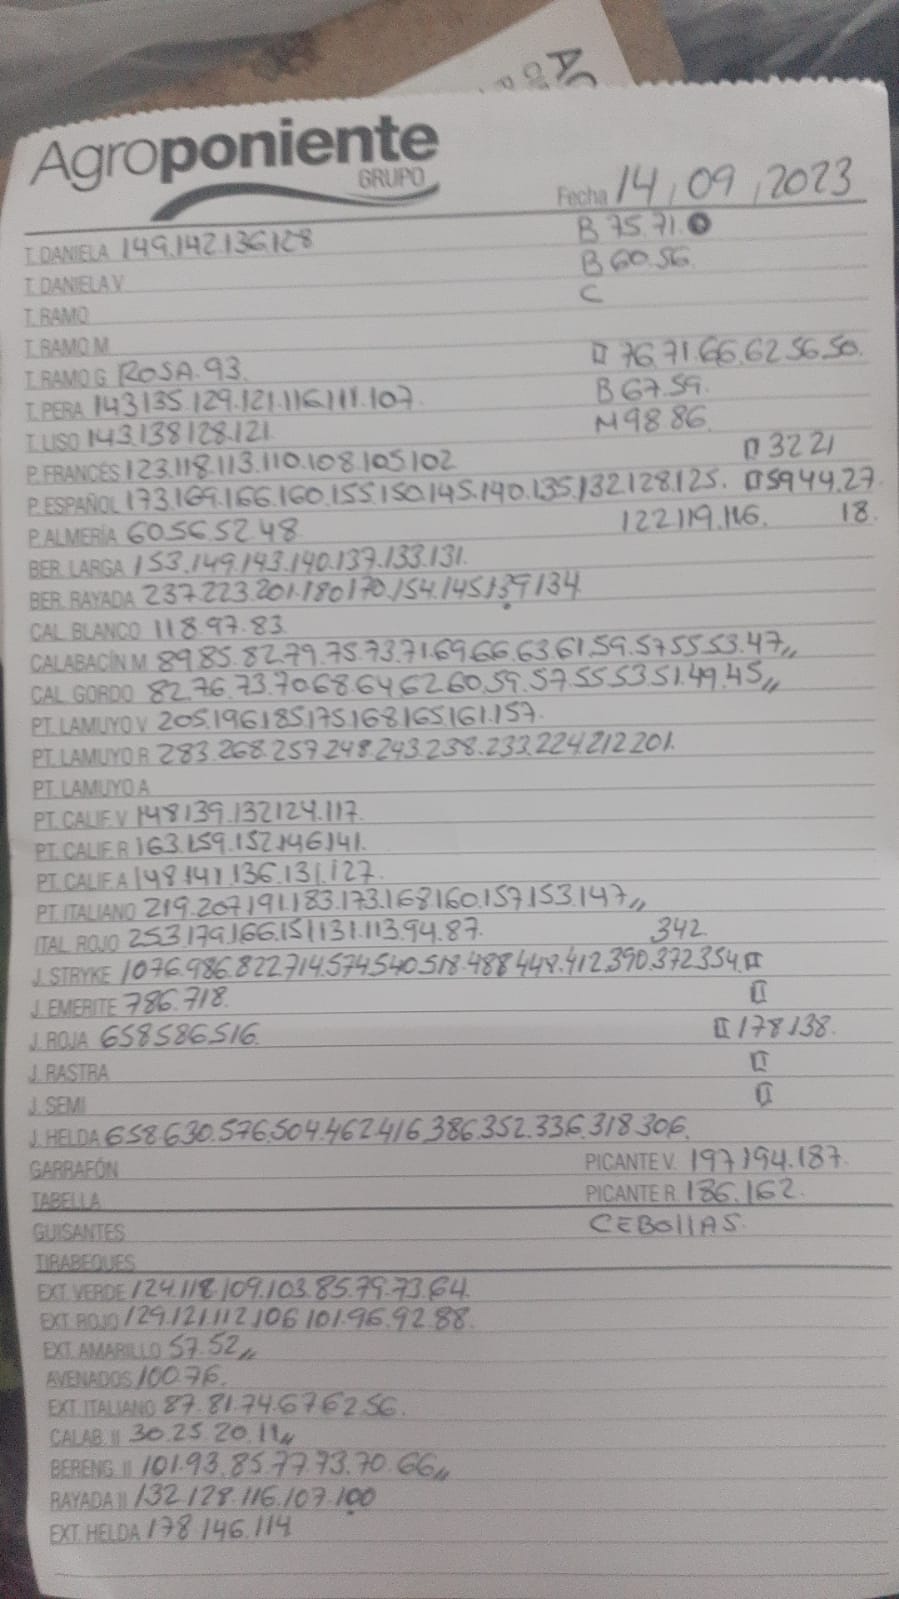 Agroponiente
GRUPO
Fecha 14, 09, 2023
T. DANIELA 149.142.136.128 B 75.71.
T. DANIELA V B 60.56.
T. RAMO C
T. RAMO M
T. RAMO G ROSA.93. 76.71.66.62.56.50.
T. PERA 143135.129.121.116.111.107. B 67.59.
T. LISO 143.138128.121. M98.86.
P. FRANCÉS 123.118.113.110.108.105102 32 21
P. ESPAÑOL 173.169.166.160.155.150.145.140.135.132.128.125. 59 44.27.
P. ALMERÍA 60.56.52.48. 122.119.116. 18.
BER. LARGA 153.149.143.140.137.133.131.
BER. RAYADA 237.223.201.180170.154.145.139134
CAL. BLANCO 118.97.83.
CALABACÍN M 89.85.82.79.75.73.71.69.66.63.61.59.57.55.53.47,,
CAL. GORDO 82.76.73.70.68.64.62.60.59.57.55.53.51.49.45,,
PT. LAMUYO V 205.196.185.175168165.161.157.
PT. LAMUYO R 283.268.257.248.243.238.233.224.212201.
PT. LAMUYO A
PT. CALIF. V 148139.132124.117.
PT. CALIF. R 163.159.152.146141.
PT. CALIF. A 148.141.136.131.127.
PT. ITALIANO 219.207.191.183.173.168160.157153.147,,
ITAL. ROJO 253.179.166.151131.113.94.87. 342.
J. STRYKE 1076.986.822714.574.540.518.488.448.412.390.372354.
J. EMERITE 786.718.
J. ROJA 658586516. 178138.
J. RASTRA
J. SEMI
J. HELDA 658.630.576.504.462.416.386.352.336.318306.
GARRAFÓN PICANTE V. 197194.187.
TABELLA PICANTE R. 186.162.
GUISANTES CEBOllAS.
TIRABEQUES
EXT. VERDE 124.118.109.103.85.79.73.64.
EXT. ROJO 129.121.112.106101.96.92.88.
EXT. AMARILLO 57.52,,
AVENADOS 100.76.
EXT. ITALIANO 87.81.74.67.62.56.
CALAB. II 30.25.20.11,,
BERENG. II 101.93.85.77.73.70.66,,
RAYADA II 132.128.116.107.100
EXT. HELDA 178146.114